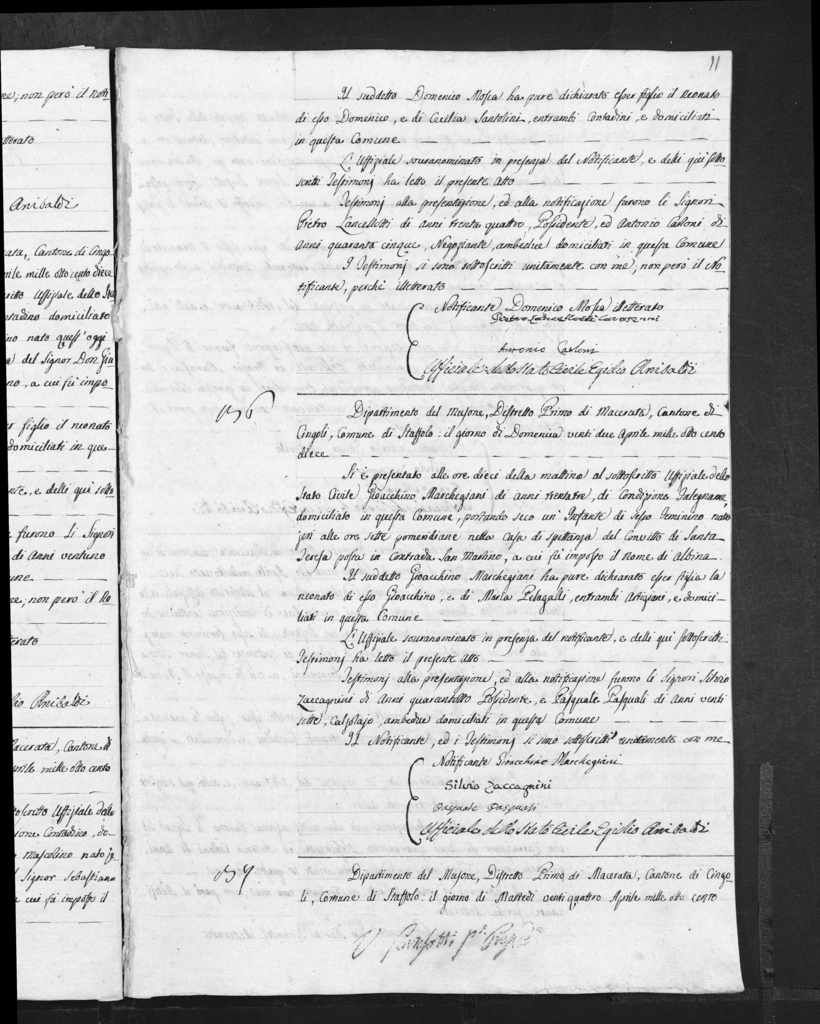 ne, non però il Noti
tterato
Anibaldi
rata, Cantone di Cingo
rile mille otto cento diece
critto Uffiziale dello Sta
ntadino domiciliato
ino nato quest'oggi
a del Signor Don Gia
no, a cui fù impo
er figlio il neonato
domiciliati in que
nte, e delli qui sotto
furono li Signori
di Anni ventuno
une
ne, non però il No
tterato
dio Anibaldi
Macerata, Cantone di
prile mille otto cento
toscritto Uffiziale dello
ione Contadino, do
Mascolino nato je
l Signor Sebastiano
cui fù imposto il
11
Il suddetto Domenico Mosca ha pure dichiarato esser figlio il Neonato
di esso Domenico, e di Cecilia Santolini, entrambi Contadini, e domiciliati
in questa Comune
L'Uffiziale sovranominato in presenza del Notificante, e delli qui sotto
scritti Testimonj ha letto il presente Atto
Testimonj alla presentazione, ed alla notificazione furono li Signori
Pietro Lancellotti di anni trenta quattro, Possidente, ed Antonio Carloni di
Anni quaranta cinque, Negoziante, ambedue domiciliati in questa Comune
I Testimonj si sono sottoscritti unitamente con me, non però il No
tificante, perchè illetterato
Notificante Domenico Mosca illetterato
Pietro Lancellotti
Antonio Carloni
Ufficiale dello Stato Civile Egidio Anibaldi
N° 36
Dipartimento del Musone, Distretto Primo di Macerata, Cantone di
Cingoli, Comune di Staffolo: il giorno di Domenica venti due Aprile mille otto cento
diece
Si è presentato alle ore dieci della mattina al sottoscritto Uffiziale dello
Stato Civile Gioacchino Marchegiani di anni trentatre, di Condizione Falegname
domiciliato in questa Comune, portando seco un' Infante di sesso Feminino nato
jeri alle ore sette pomeridiane nella Casa di spettanza del Convitto di Santa
Teresa posta in Contrada San Martino, a cui fù imposto il Nome di Albina
Il suddetto Gioacchino Marchegiani ha pure dichiarato esser figlia la
neonato di esso Gioacchino, e di Maria Pelagalli, entrambi Artigiani, e domici
liati in questa Comune
L'Uffiziale sovranominato in presenza del notificante, e delli qui sottoscritti
Testimonj ha letto il presente Atto
Testimonj alla presentazione, ed alla notificazione furono li Signori Silvio
Zaccagnini di Anni quarantotto Possidente, e Pasquale Pasquali di Anni venti
sette, Calzolajo, ambedue domiciliati in questa Comune
Il Notificante, ed i Testimonj si sono sottoscritti unitamente con me
Notificante Gioacchino Marchegiani
Silvio Zaccagnini
Pasquale Pasquali
Ufficiale dello Stato Civile Egidio Anibaldi
N° 37
Dipartimento del Musone, Distretto Primo di Macerata, Cantone di Cingo
li, Comune di Staffolo: il giorno di Martedì venti quattro Aprile mille otto cento